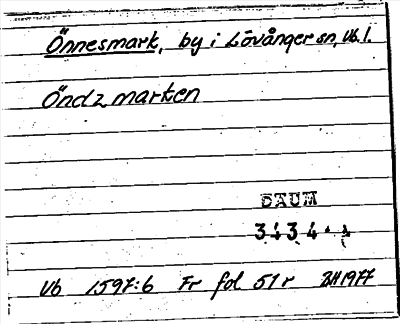 Önnesmark, by i Lövånger sn, Vb. l.
Öndzmarken
DAUM
3434
Vb 1597:6 Fr fol 51r BH 1977